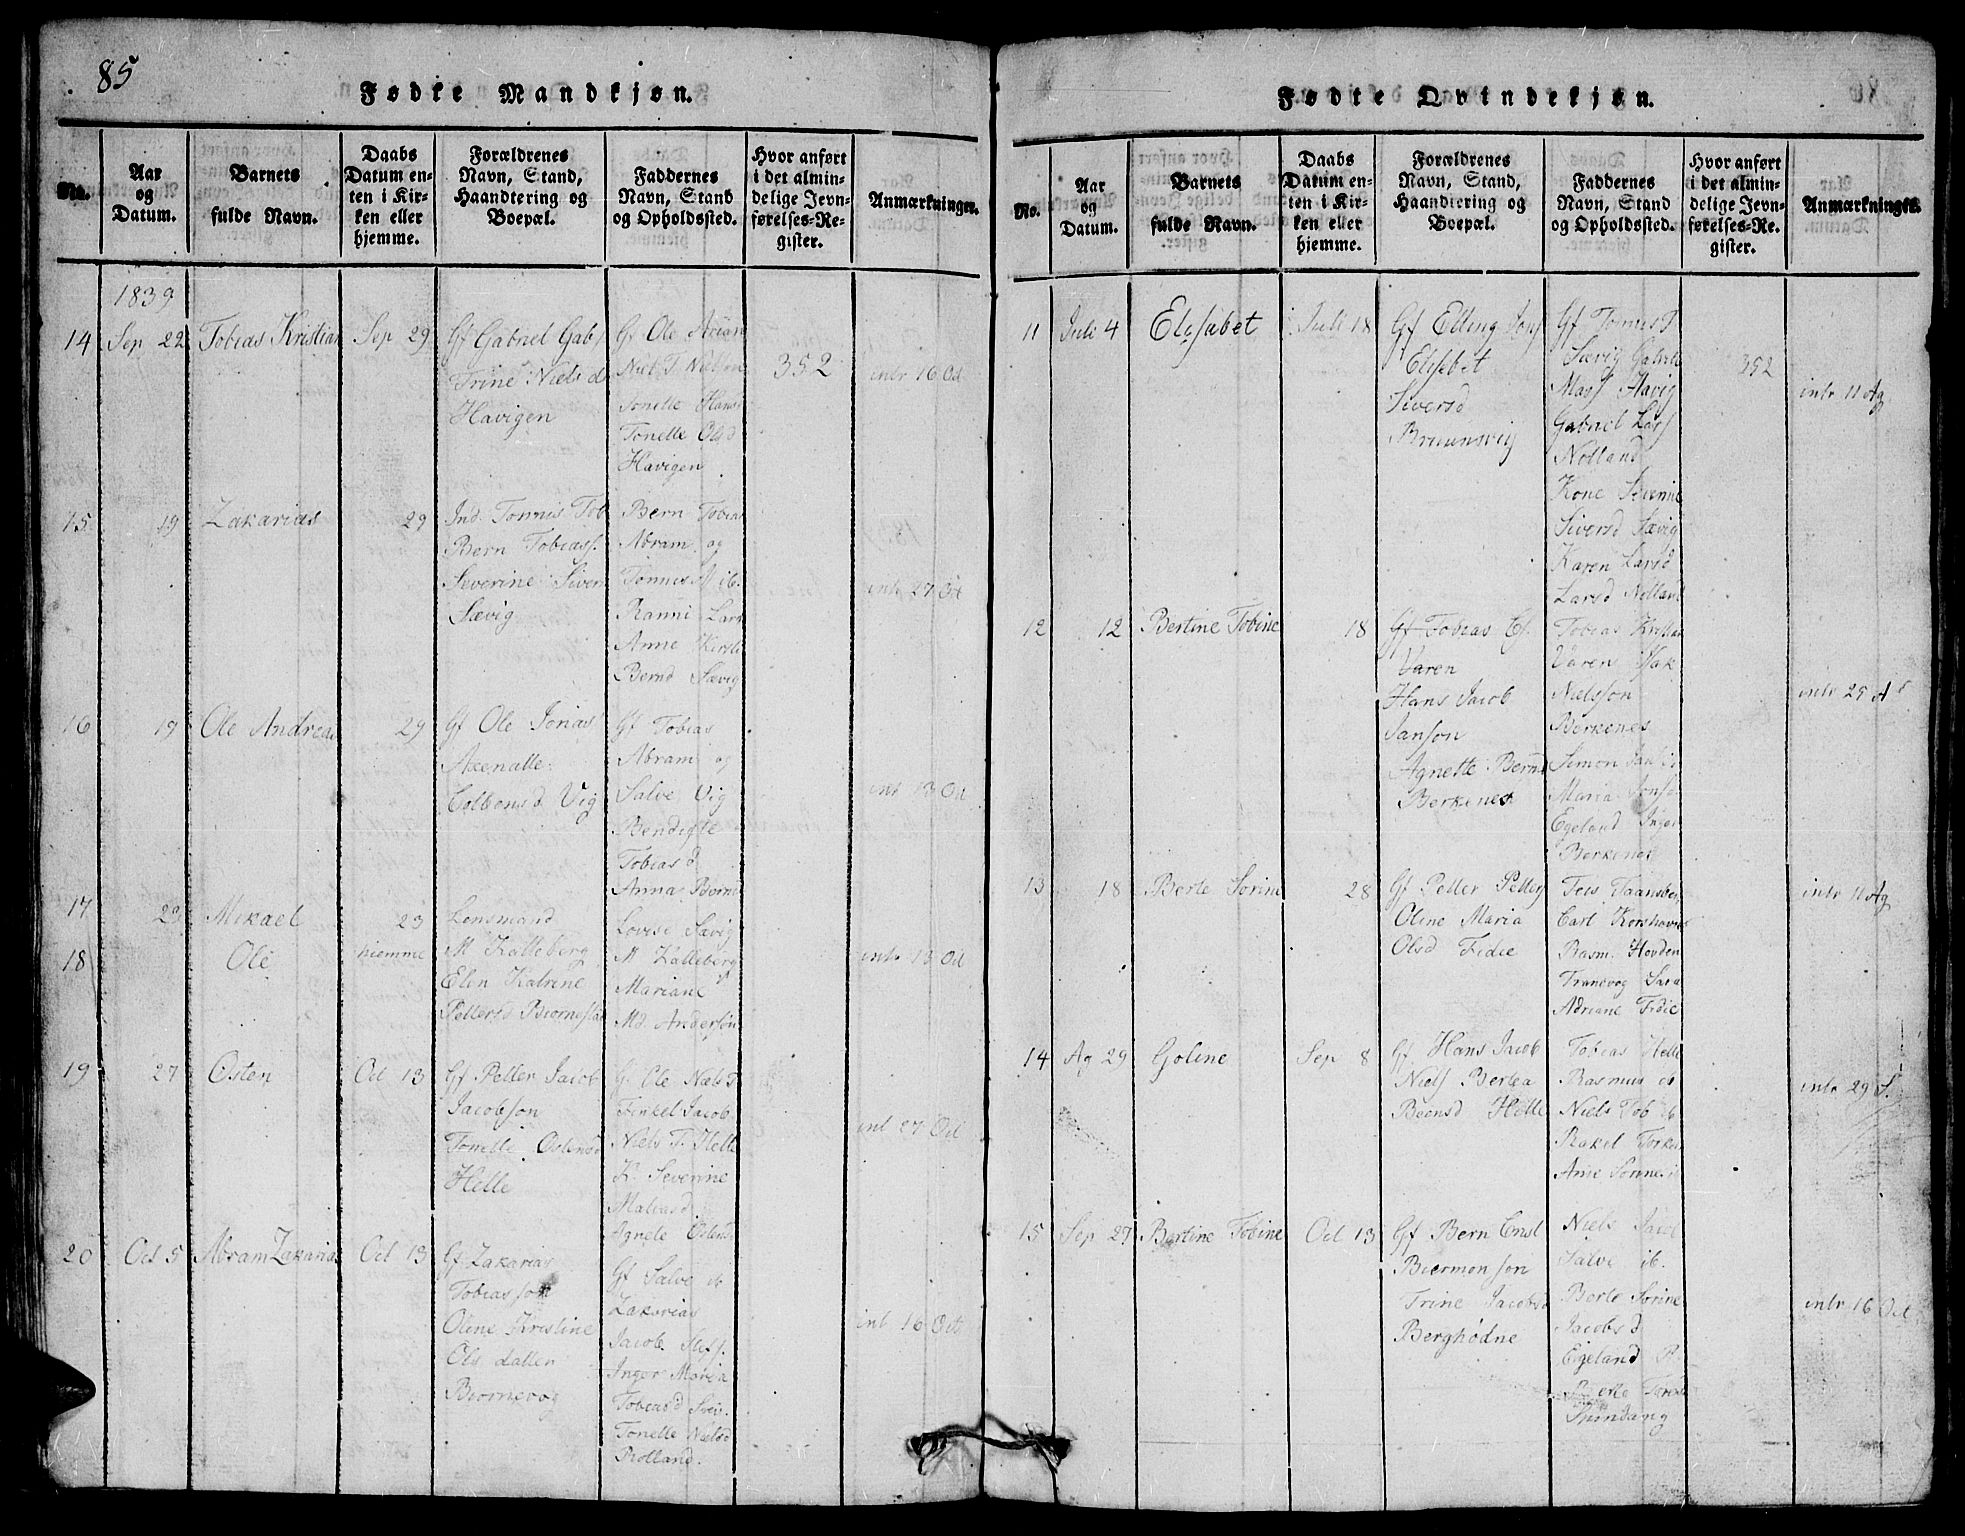 85
Fødte Mandkjøn.
No.
Aar og Datum.
Barnets fulde Navn.
Daabs Datum enten i Kirken eller hjemme.
Forældrenes Navn, Stand, Haandtering og Boepæl.
Faddernes Navn, Stand og Opholdssted.
Hvor anført i det almindelige Jevnførelses-Register.
Anmærkninger.
1839
14 Sep 22 Tobias Kristian Sep 29
Gf Gabriel Gabs
Trine Niels d
Havigen
Gf Ole Arian
Niel T Nielson
Tonette Hansd
Tonette Olsd
Havigen
352
intr 16 Oct
15 19 Zakarias 29
Ind. Tonnis Tob
Bern Tobiass.
Severine Siver
Sævig
Bern Tobias
Abram og
Tonnes A ib.
Ranni Lars
Anne Kirsti
Bernd Sævig
intr 27 Oct
16 19 Ole Andreas 29
Gf Ole Jonas
Axenalle
Colbensd Vig
Gf Tobias
Abram og
Salve Vig
Bendigte
Tobias d
Anna Bern
intr 13 Oct
17 23 Mikael 23
18 Ole hiemme
Lensmand
M Kalleberg
Elen Katrine
Pettersd Biornestad
Lovise Sævig
M Kalleberg
Mariane
Md. Anderson
intr 13 Oct
19 27 Osten Oct 13
Gf Petter Jacob
Jacobson
Tonette Ostensd
Helle
G. Ole Niels T
Tinkel Jacob
Niels T. Helle
K. Severine
Matiasd
Agnete Ostens
int 27 Oct
20 Oct 5 Abram Zakarias Oct 13
Gf Zakarias
Tobiasson
Oline Kristine
Ols datter
Biornevog
Gf Salve ib
Zakarias
Jacob Stefs.
Inger Maria
Tobiasd
Tonette Nielsd
Rolland.
int 16 Oct
Fødte Qvindekjøn.
No.
Aar og Datum.
Barnets fulde Navn.
Daabs Datum enten i Kirken eller hjemme.
Forældrenes Navn, Stand, Haandtering og Boepæl.
Faddernes Navn, Stand og Opholdssted.
Hvor anført i det almindelige Jevnførelses-Register.
Anmærkninger.
11 Juli 4 Elisabet Juli 18
Gf Elling Jons
Elisabet
Siversd
Bruunsvig
Gf Tonnis T
Sævig Gabriel
Mass Havig
Gabriel Lars
Nolland
Kone Severine
Siversd Sævig
Karen Larsd
Larsd Nolland
352
intr 11 Ag
12 12 Bertine Tobine 18
Gf Tobias C.
Varen
Hans Jacob
Janson
Agnette Bernd
Berkenes
Tobias Kristian
Varen Jak
Nielsson
Berkenes
Simon Jan ib
Maria Jons
Egeland Inger
Berkenes
intr 25 A
13 18 Berte Sorine 28
Gf Petter Petters
Oline Maria
Olsd Fidie
Carl Korshavn
Rasm. Hovden
Tranevog Sara
Adriane Fidie
intr 11 Ag
14 Ag 29 Goline Sep 8
Gf Hans Jacob
Niels Bertea
Beonsd Helle
Tobias Helle
Rasmus ib
Niels Tob ib
Rakel Torkel
Ane Sonne ib
intr 29 S.
15 Sep 27 Bertine Tobine Oct 13
Gf Bern Enst
Biermonson
Trine Jacobsd
Berghødne
Niels Jacob
Salve ib.
Berte Sorine
Jacobs d
Egeland P
Berte Torine
intr 16 Oct